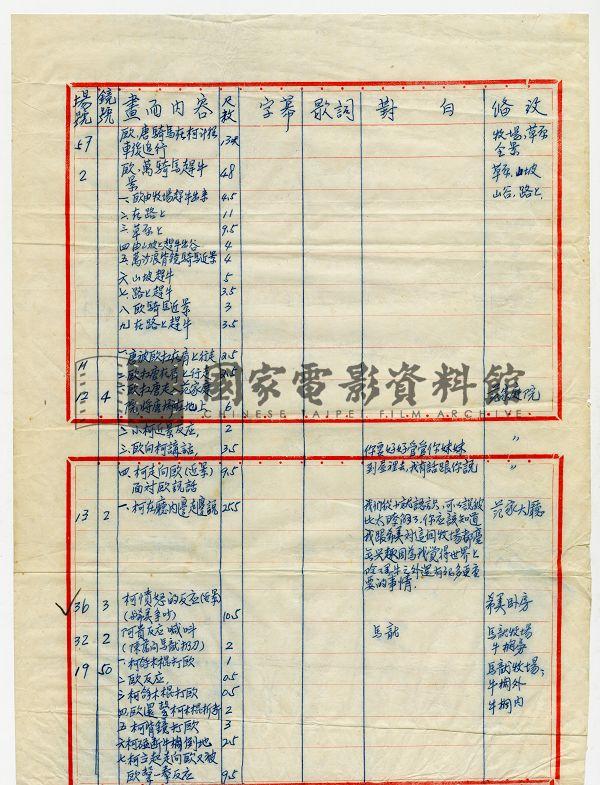 場號 鏡號 畫面內容 尺數 字幕 歌詞 對白 備改
57 歐,唐騎馬在柯 牧場,草原
車後追行 全景
2 歐,萬騎馬趕牛 48 草原,山坡
景 山谷,路上
一、歐由牧場趕牛出來 4.5
二、在路上 11
三、草原上 9.5
四、由山坡上趕牛出谷 4
五、萬 背鏡騎馬近景 4
六、山坡趕牛 5
七、路上趕牛 3.5
八、歐騎馬近景 3
九、在路上趕牛 3.5
12 4
國家電影資料館
CHINESE TAIPEI FILM ARCHIVE
二、小柯近景反應, 2
三、歐向柯講話, 3.5 你要好好管管你妹妹 〃
四、柯走向歐(近景) 9.5 到屋裡去,我有話跟你說 〃
面對歐說話
13 2 一、柯在廳內邊走邊說 25.5 我們從小就認識,可以說彼 范家大廳
比太瞭解了,你應該知道
我跟希美對這個牧場都毫
無興趣因為我覺得世界上
除了馬牛之外還有很多更重
要的事情.
36 3 柯憤怒的反應(近景) 希美卧房
(與希美爭吵) 10.5
32 2 阿貴反應喊叫 馬龍 馬獻牧場
2 牛欄旁
19 50 一、柯舒木棍打歐 1 馬獻牧場;
二、歐反應, 0.5 牛欄外
三、柯舒木棍打歐 0.5 牛欄內
四、歐還擊柯木棍折斷 2
五、柯背鏡打歐 3
六、柯碰斷牛欄倒地 2.5
七、柯立起走向歐又被
歐擊一拳反應 9.5